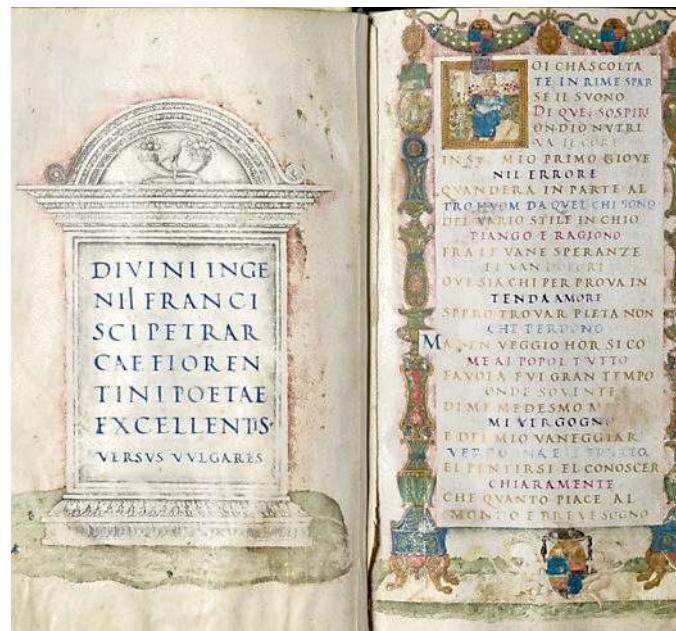 DIVINI INGE
NII FRANCI
SCI PETRAR
CAE FLOREN
TINI POETAE
EXCELLENTIS·
VERSVS VVLGARES
OI CHASCOLTA
TE IN RIME SPAR
SE IL SVONO
DI QVEI SOSPIRI
ONDIO NVTRI
VA IL CORE
IN SVL MIO PRIMO GIOVE
NIL ERRORE
QVANDERA IN PARTE AL
TRO HVOM DA QVEL CHI SONO
DEL VARIO STILE IN CHIO
PIANGO E RAGIONO
FRA LE VANE SPERANZE
E L VAN DOLORE
OVE SIA CHI PER PROVA IN
TENDA AMORE
SPERO TROVAR PIETA NON
CHE PERDONO
MA BEN VEGGIO HOR SI CO
ME AL POPOL TVTTO
FAVOLA FVI GRAN TEMPO
ONDE SOVENTE
DI ME MEDESMO
MI VERGOGNO
E DEL MIO VANEGGIAR
EL PENTIRSI EL CONOSCER
CHIARAMENTE
CHE QVANTO PIACE AL
MONDO E BREVE SOGNO